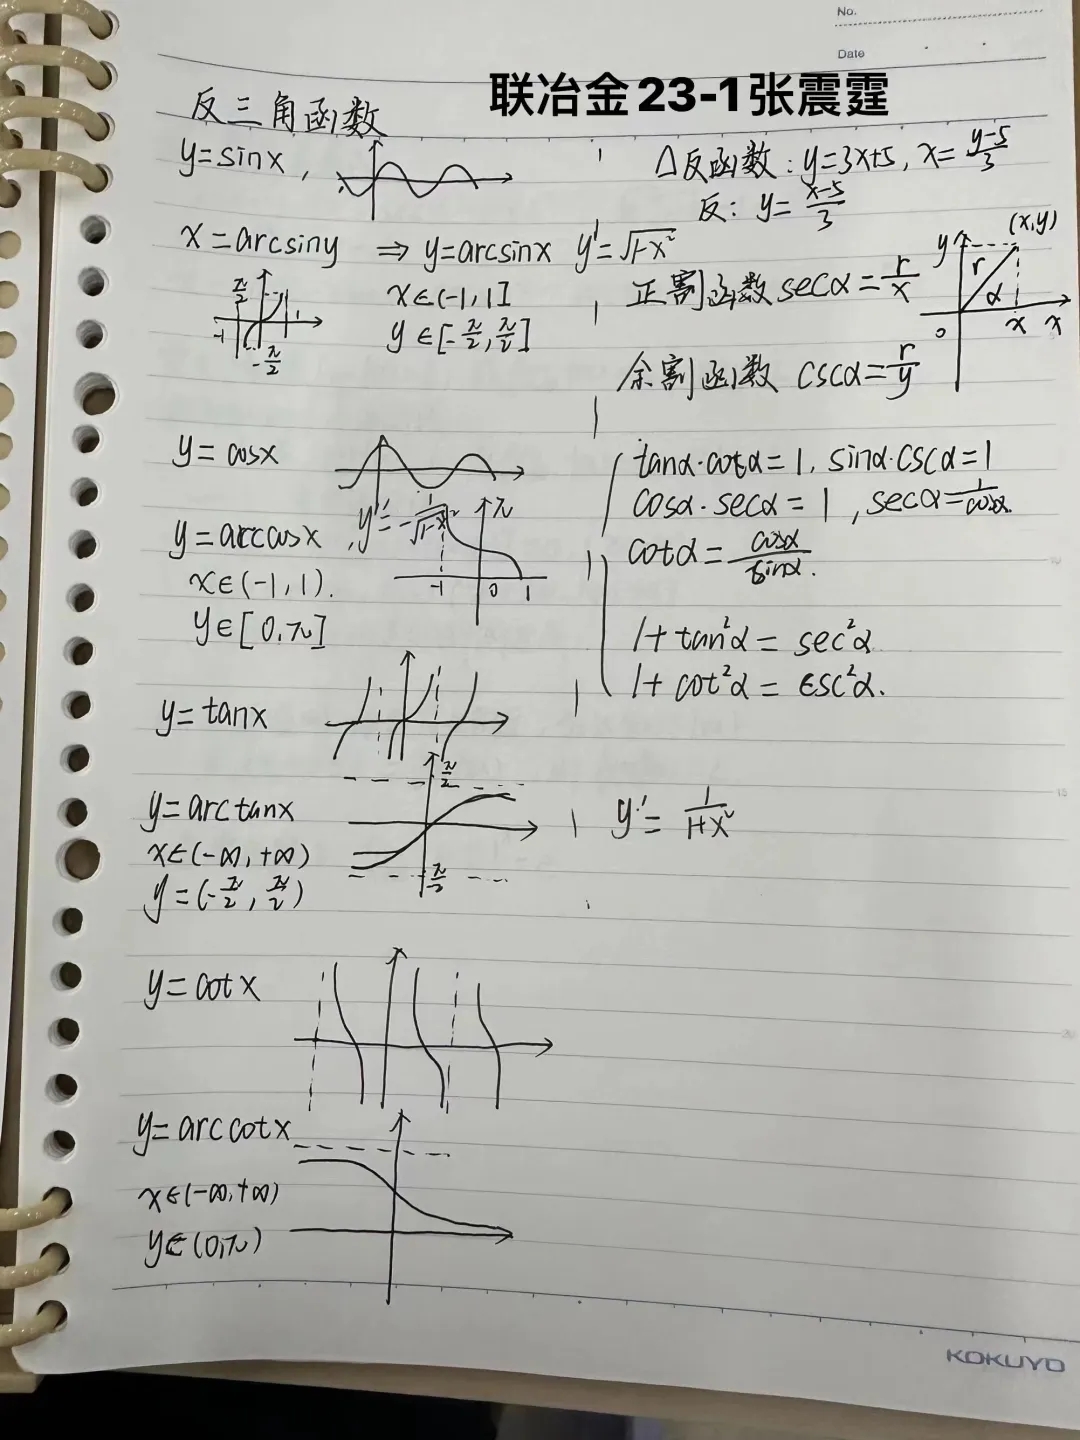 No.
Date
联冶金23-1张震霆
反三角函数
y=sinx,
△反函数: y=3x+5, x=\frac{y-5}{3}
反: y=\frac{x-5}{3}
x=arcsiny ⇒ y=arcsinx y'=√1-x²
x∈(-1,1]
y∈[-\frac{π}{2},\frac{π}{2}]
\frac{π}{2}
-1 1
-\frac{π}{2}
正割函数 secα=\frac{r}{x}
余割函数 cscα=\frac{r}{y}
(x,y)
y r α
0 x x
y=cosx
y=arccosx, y'=-\frac{1}{√1-x²}
x∈(-1,1).
y∈[0,π]
π
-1 0 1
tanα·cotα=1, sinα·cscα=1
cosα·secα=1, secα=\frac{1}{cosα}.
cotα=\frac{cosα}{sinα}.
1+tan²α=sec²α
1+cot²α=csc²α.
y=tanx
y=arctanx
x∈(-∞,+∞)
y=(-\frac{π}{2},\frac{π}{2})
\frac{π}{2}
\frac{π}{2}
y'=\frac{1}{1+x²}
y=cotx
y=arccotx
x∈(-∞,+∞)
y∈(0,π)
15
20
KOKUYO